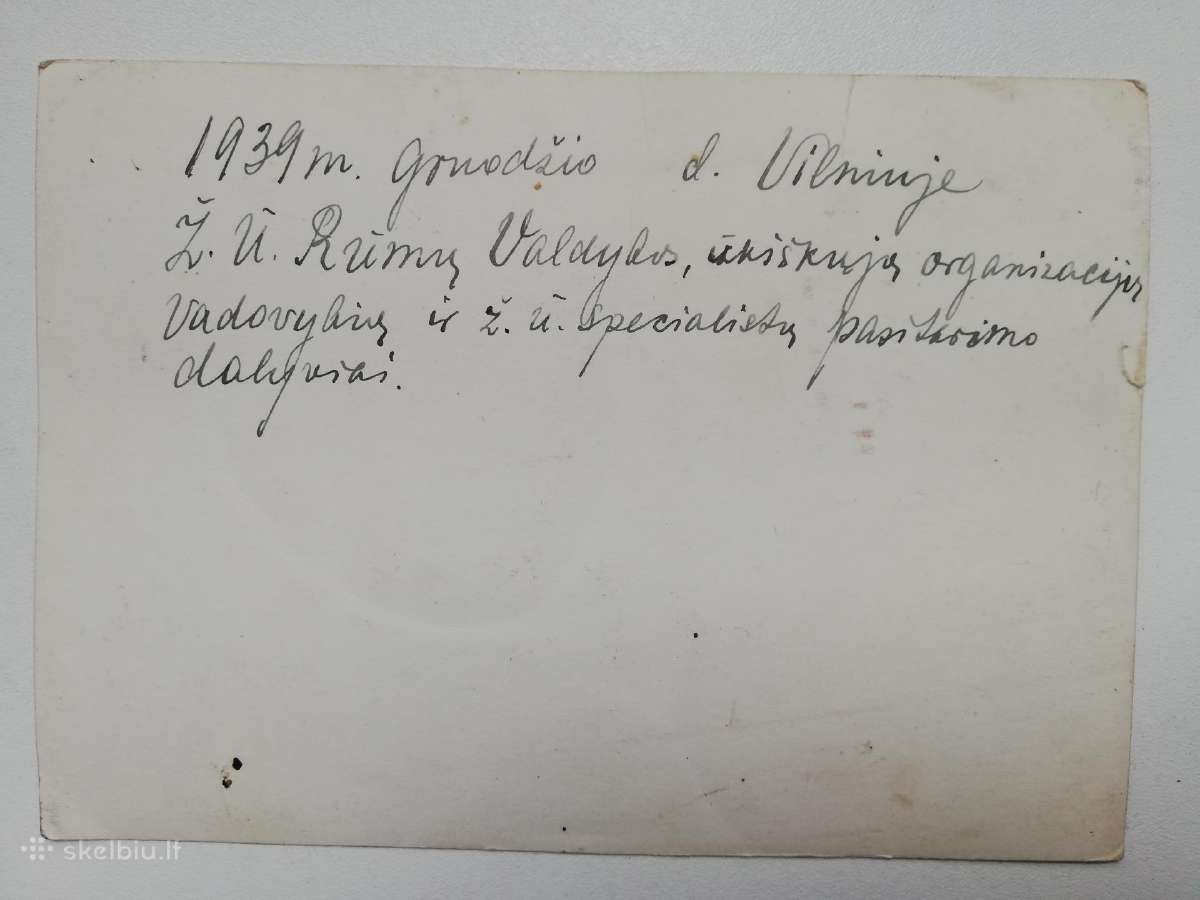 1939 m. Gruodžio d. Vilniuje
Ž. Ū. Rūmų Valdybos, ūkiškųjų organizacijų
vadovybių ir ž. ū. specialistų pasitarimo
dalyviai.
skelbiu.lt